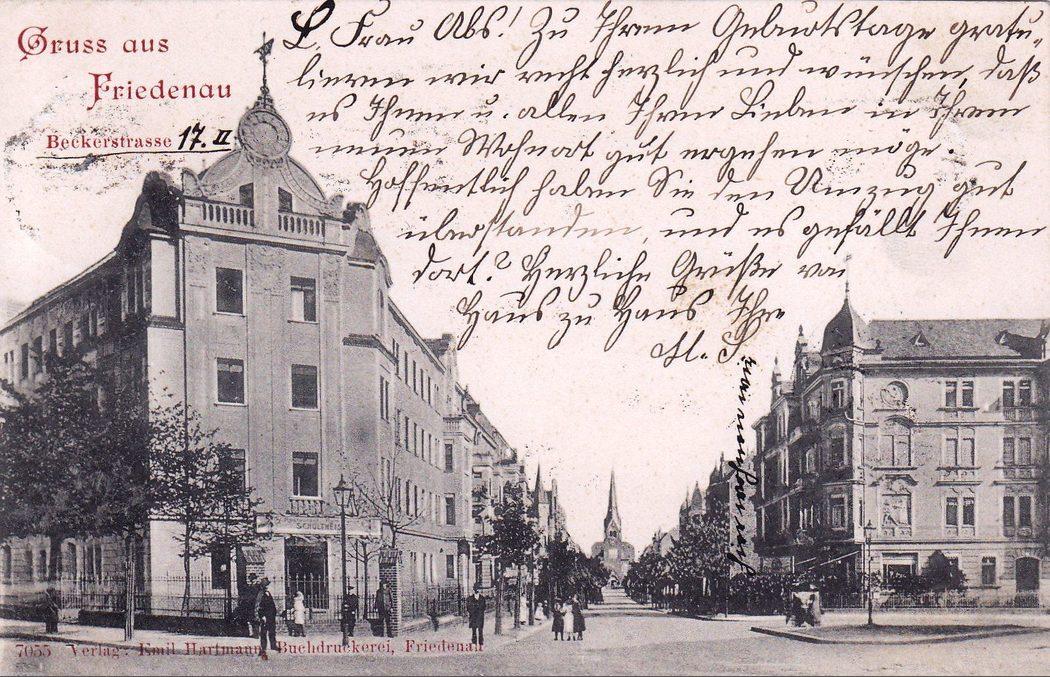 Gruss aus
Friedenau
Beckerstrasse 17. II
L. Frau Abs! Zu Ihrem Geburtstage gratu-
lieren wir recht herzlich und wünschen, daß
es Ihnen u. allen Ihren Lieben in Ihrem
neuen Wohnort gut ergehen möge.
Hoffentlich haben Sie den Umzug gut
überstanden, und es gefällt Ihnen
dort? Herzliche Grüße von
Haus zu Haus Ihre
SCHULTHEIS
7055 Verlag: Emil Hartmann, Buchdruckerei, Friedenau